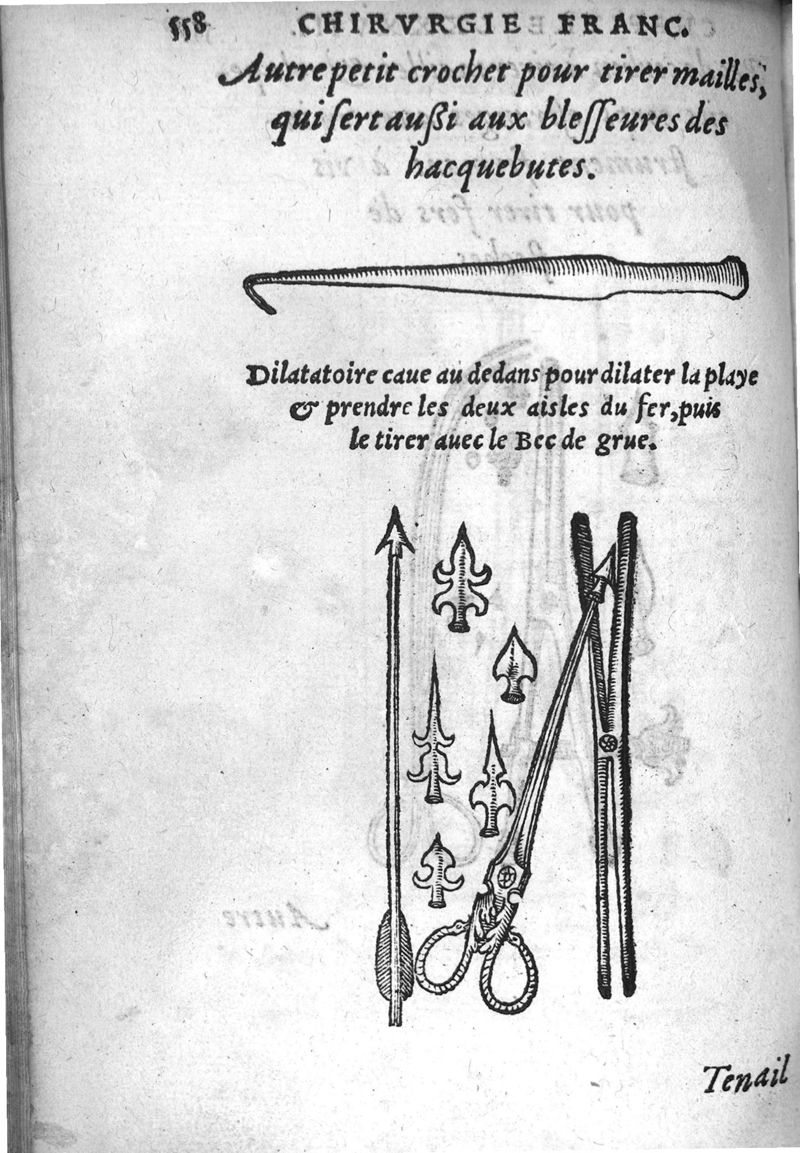 558 CHIRVRGIE FRANC.
Autre petit crochet pour tirer mailles,
qui ſert außi aux bleſſeures des
hacquebutes.
Dilatatoire caue au dedans pour dilater la playe
& prendre les deux aisles du fer, puis
le tirer auec le Bec de grue.
Tenail